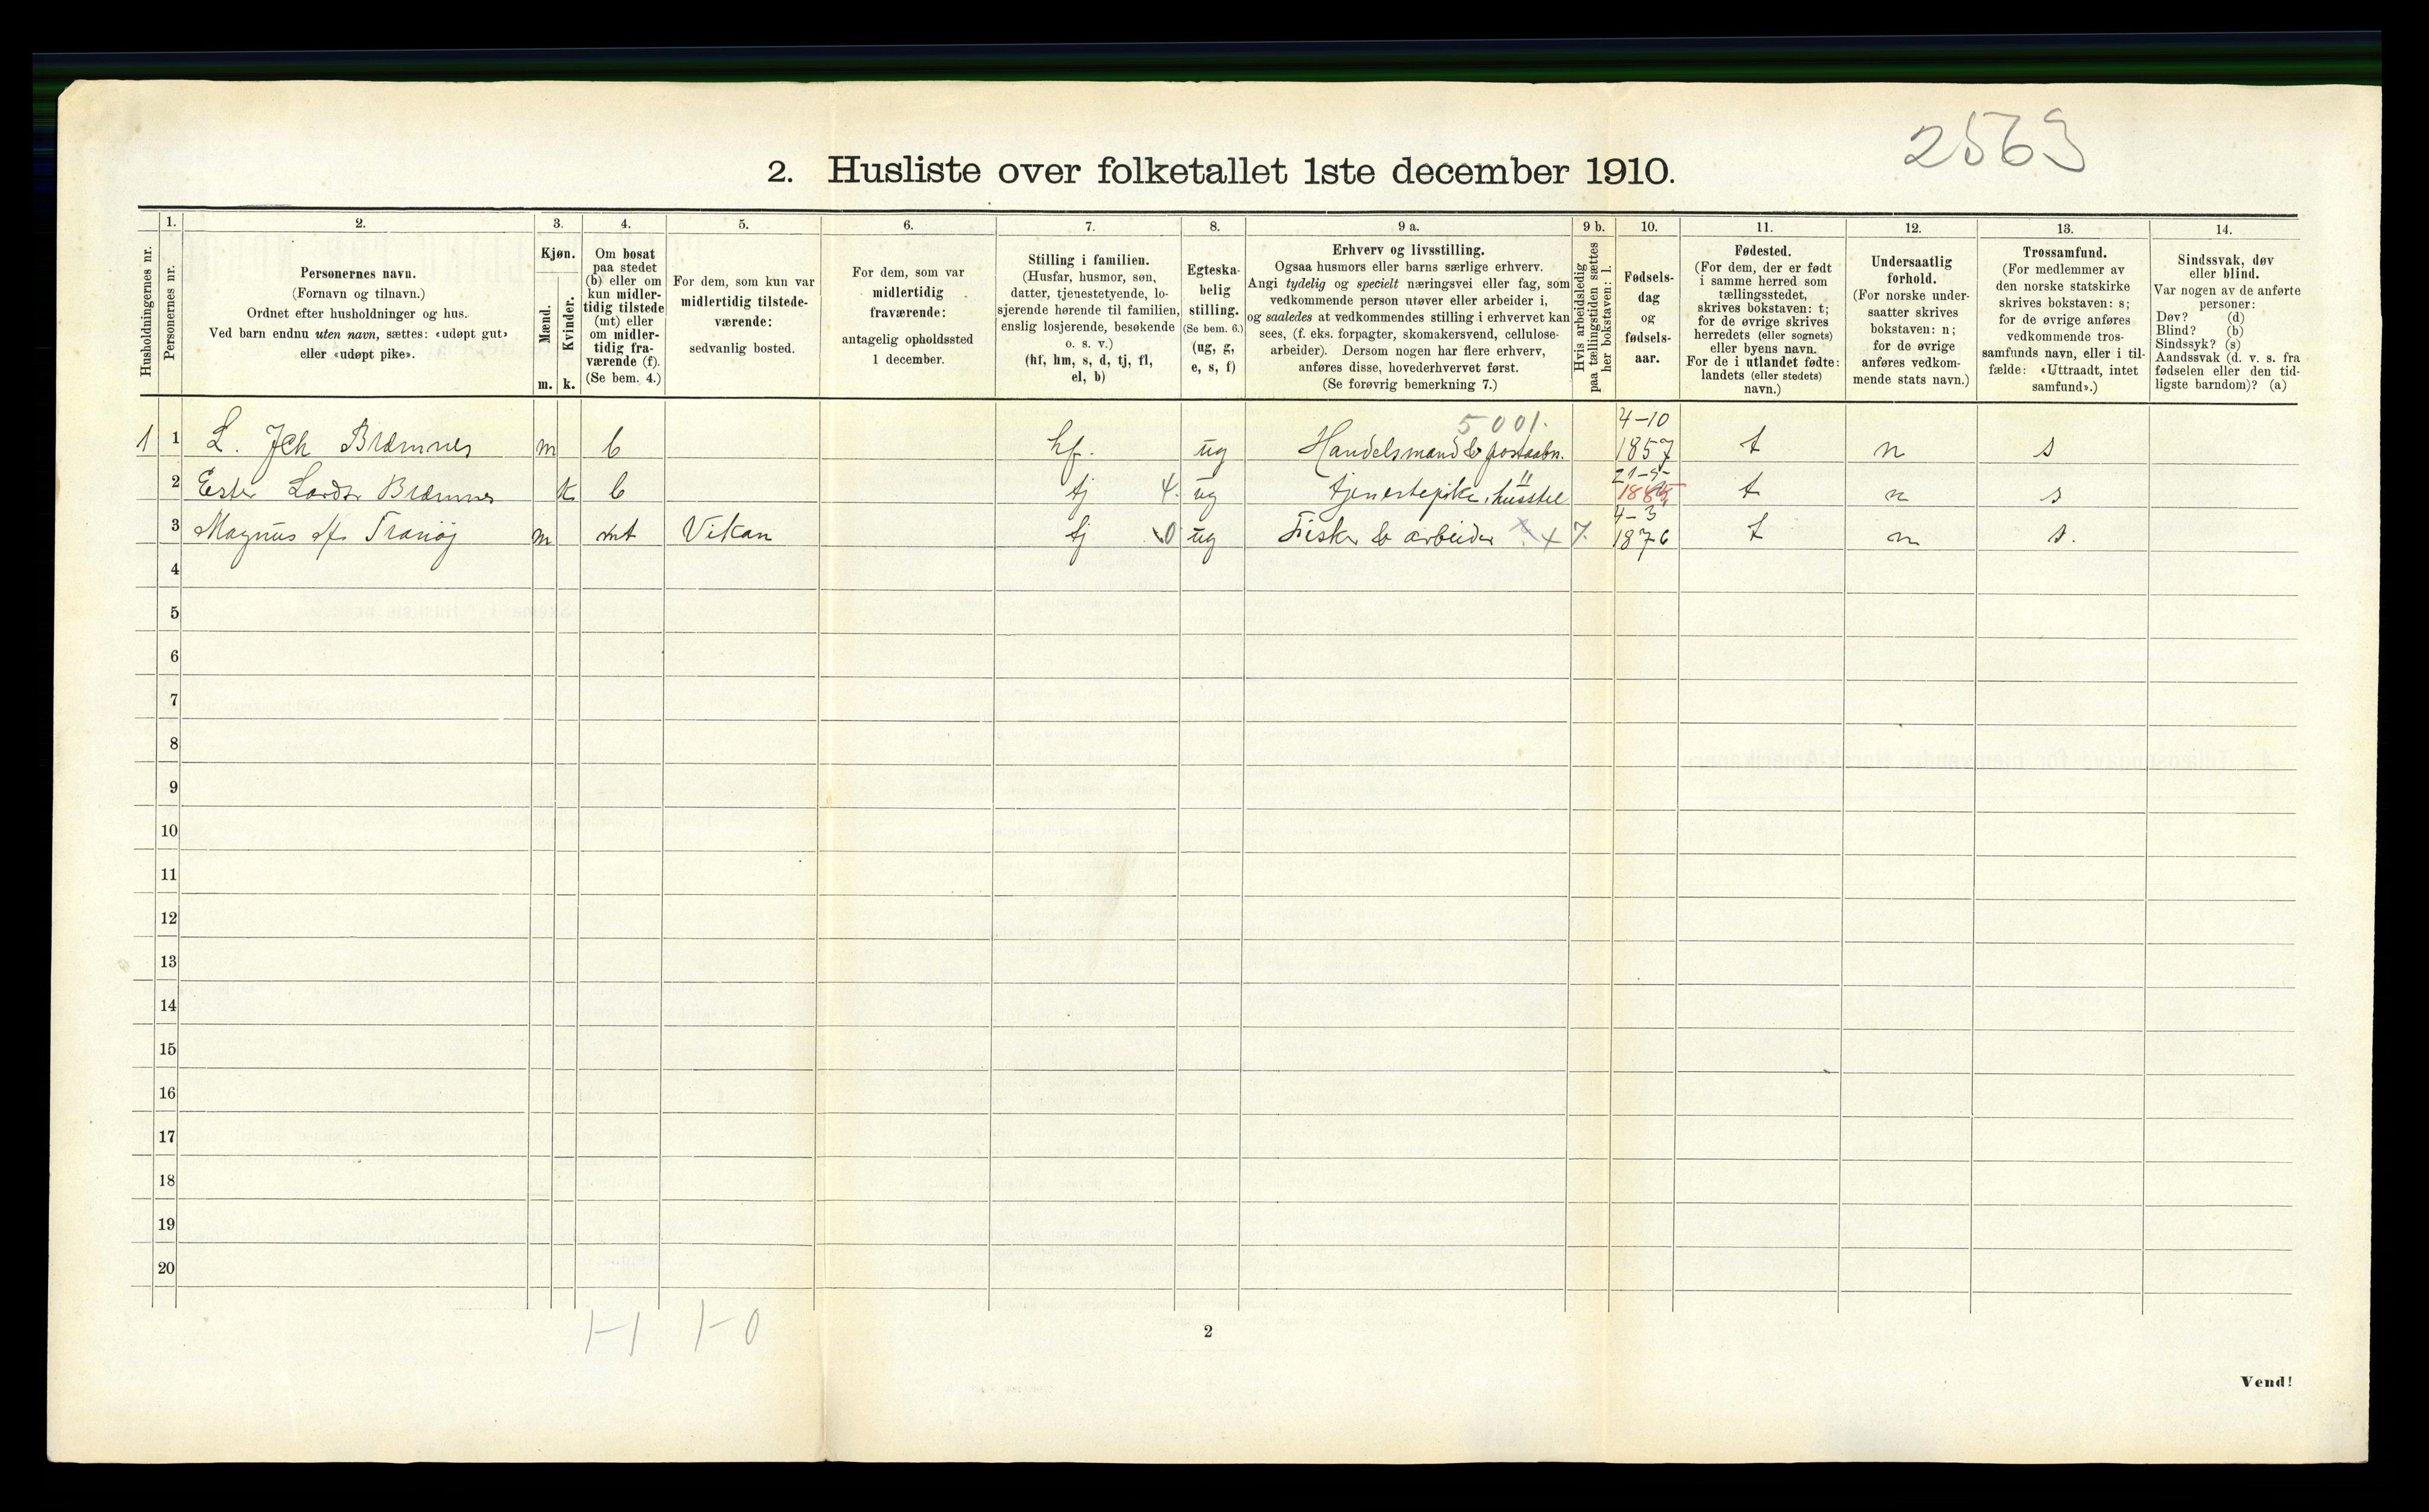 2563
2. Husliste over folketallet 1ste december 1910.
Husholdningernes nr.
1.
Personernes nr.
2.
Personernes navn.
(Fornavn og tilnavn.)
Ordnet efter husholdninger og hus.
Ved barn endnu uten navn, sættes: «udøpt gut»
eller «udøpt pike».
3.
Kjøn.
Mænd.
Kvinder.
m. k.
4.
Om bosat
paa stedet
(b) eller om
kun midler-
tidig tilstede
(mt) eller
om midler-
tidig fra-
værende (f).
(Se bem. 4.)
5.
For dem, som kun var
midlertidig tilstede-
værende:
sedvanlig bosted.
6.
For dem, som var
midlertidig
fraværende:
antagelig opholdssted
1 december.
7.
Stilling i familien.
(Husfar, husmor, søn,
datter, tjenestetyende, lo-
sjerende hørende til familien,
enslig losjerende, besøkende
o. s. v.)
(hf, hm, s, d, tj, fl,
el, b)
8.
Egteska-
belig
stilling.
(Se bem. 6.)
(ug, g,
e, s, f)
9 a.
Erhverv og livsstilling.
Ogsaa husmors eller barns særlige erhverv.
Angi tydelig og specielt næringsvei eller fag, som
vedkommende person utøver eller arbeider i,
og saaledes at vedkommendes stilling i erhvervet kan
sees, (f. eks. forpagter, skomakersvend, cellulose-
arbeider). Dersom nogen har flere erhverv,
anføres disse, hovederhvervet først.
(Se forøvrig bemerkning 7.)
9 b.
Hvis arbeidsledig
paa tællingstiden sættes
her bokstaven: l.
10.
Fødsels-
dag
og
fødsels-
aar.
11.
Fødested.
(For dem, der er født
i samme herred som
tællingsstedet,
skrives bokstaven: t;
for de øvrige skrives
herredets (eller sognets)
eller byens navn.
For de i utlandet fødte:
landets (eller stedets)
navn.)
12.
Undersaatlig
forhold.
(For norske under-
saatter skrives
bokstaven: n;
for de øvrige
anføres vedkom-
mende stats navn.)
13.
Trossamfund.
(For medlemmer av
den norske statskirke
skrives bokstaven: s;
for de øvrige anføres
vedkommende tros-
samfunds navn, eller i til-
fælde: «Uttraadt, intet
samfund».)
14.
Sindssvak, døv
eller blind.
Var nogen av de anførte
personer:
Døv? (d)
Blind? (b)
Sindssyk? (s)
Aandssvak (d. v. s. fra
fødselen eller den tid-
ligste barndom)? (a)
5001. 4-10
1 1 L. Joh Bræmnes m b hf. ug Handelsmand & postaabn. 1857 t n s
2 Ester Bræmnes k b tj 4. ug tjenestepike, husstel t n s
4-3
3 Magnus Tranøj m mt Vikan tj 0 ug Fisker & arbeider 1876 t n s.
4
5
6
7
8
9
10
11
12
13
14
15
16
17
18
19
20
1-1 1-0
2
Vend!